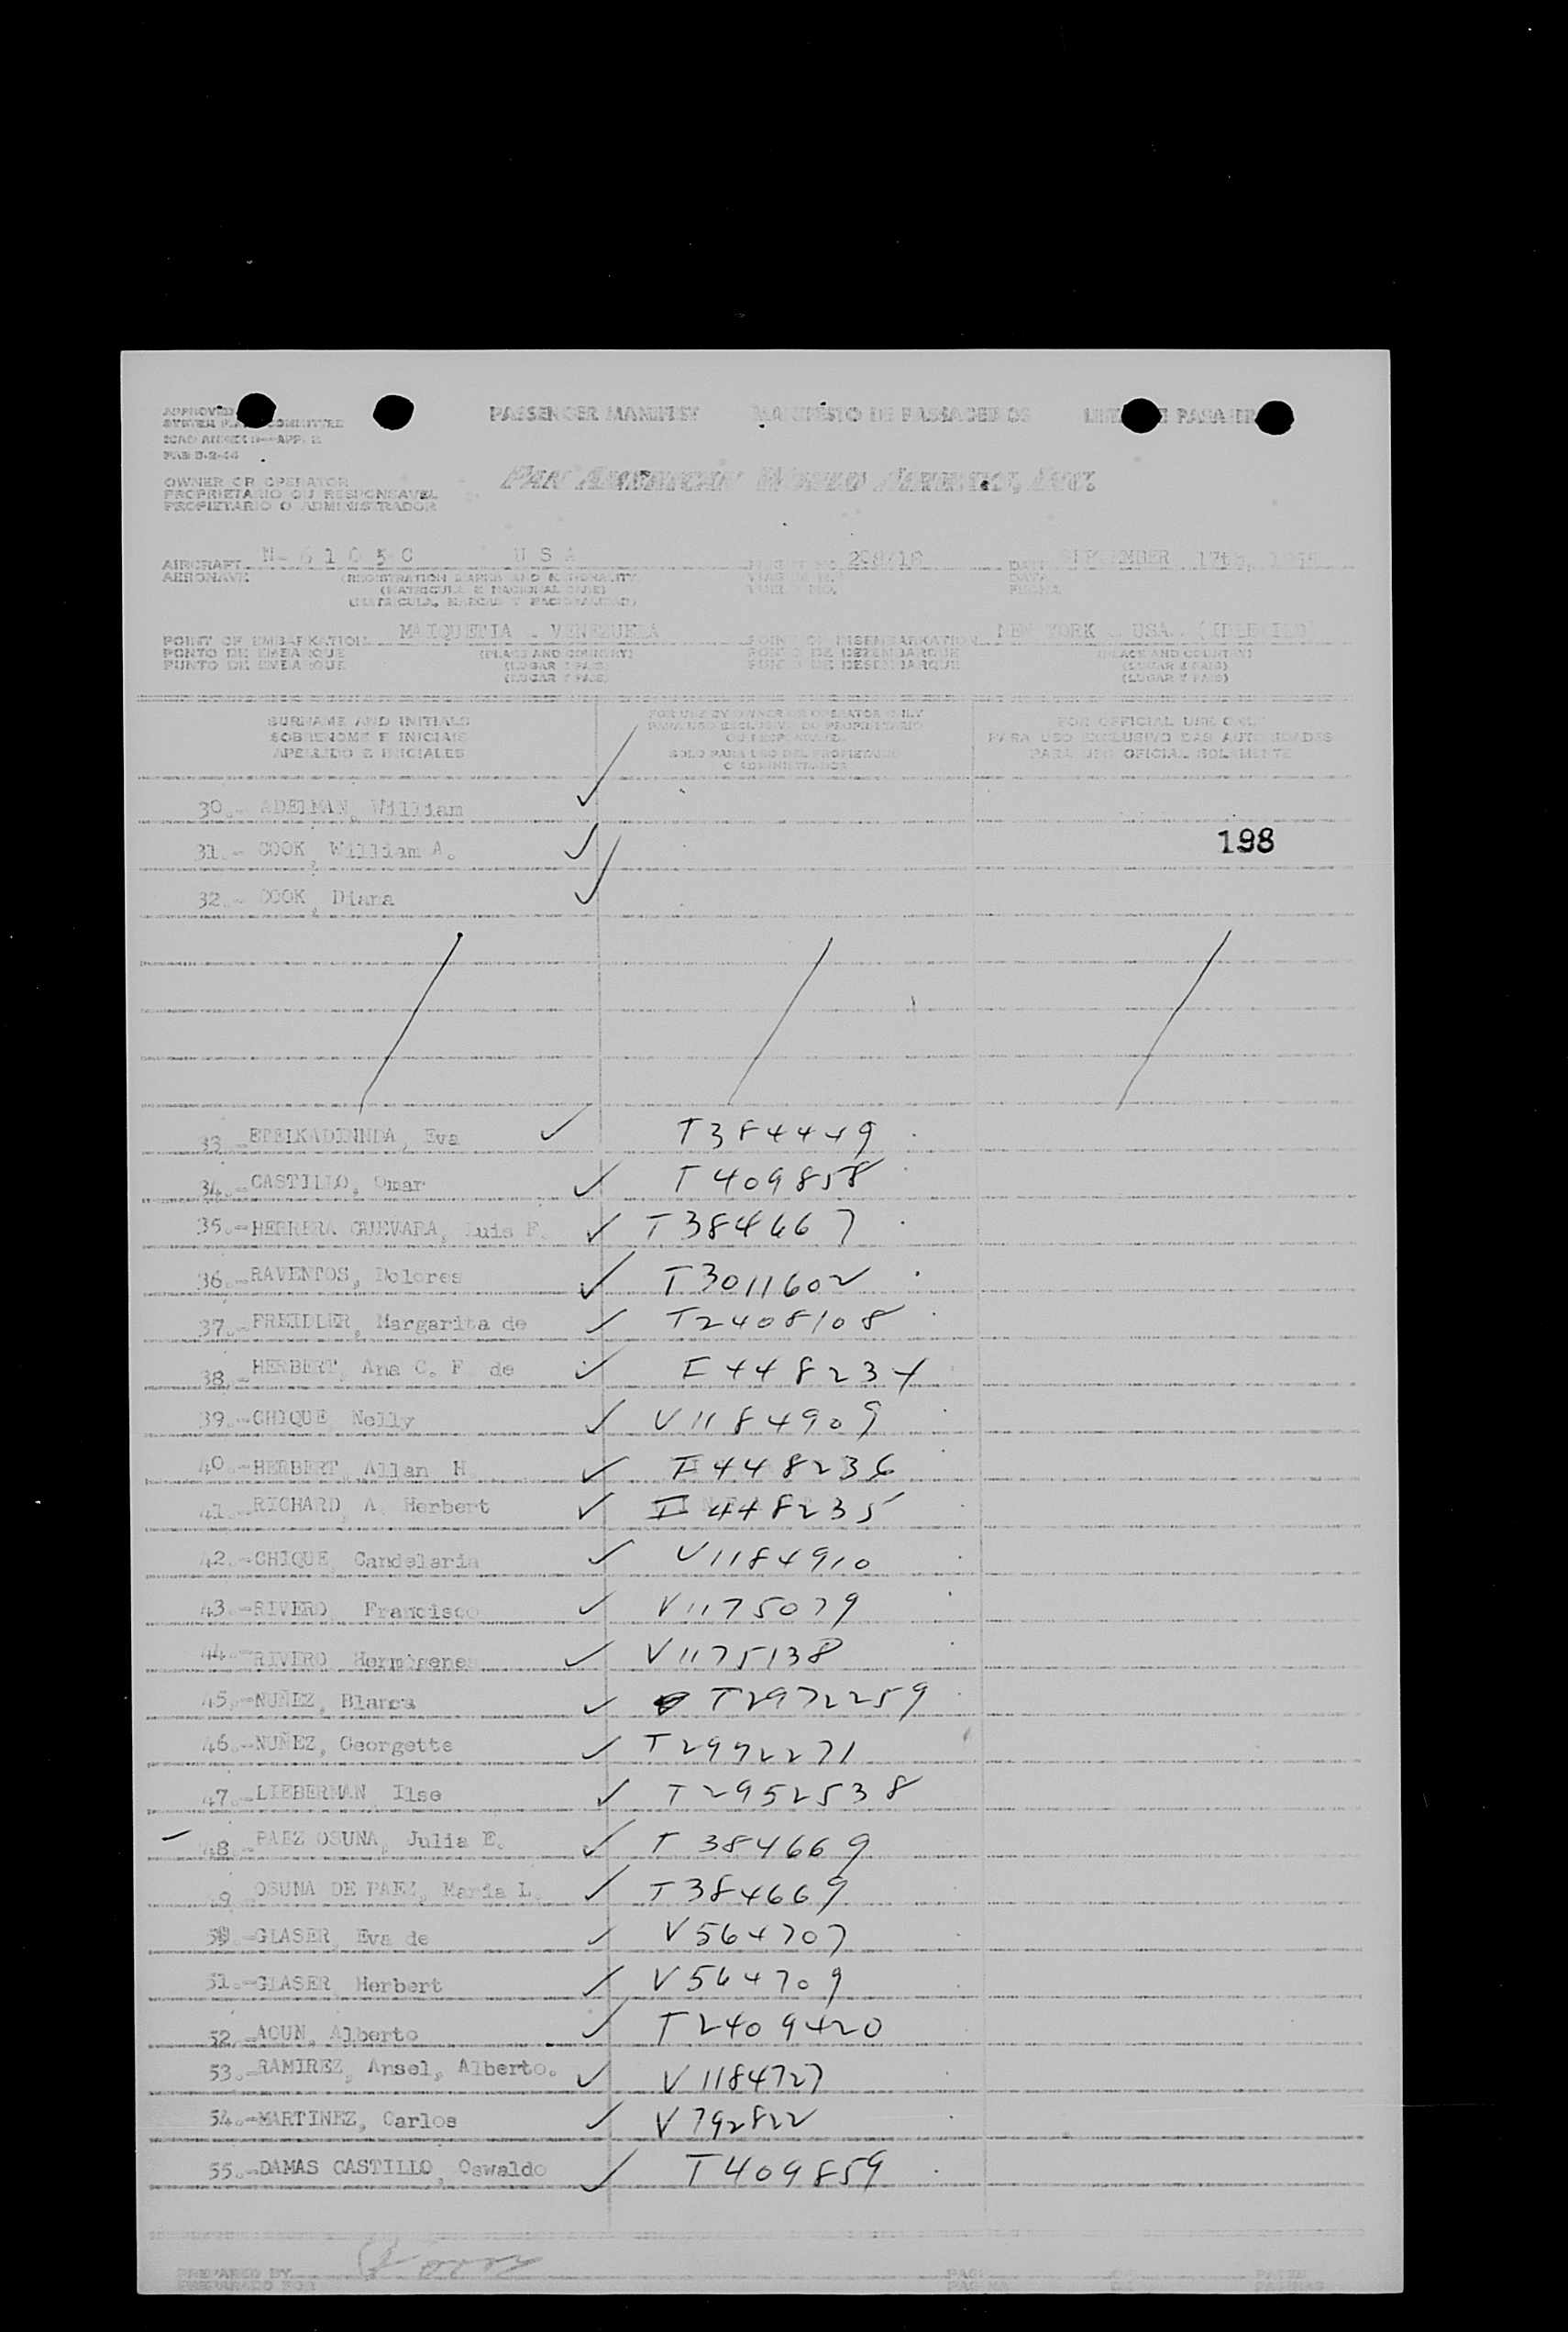 APPROVED
SYSTEM COMMITTEE
OWNER OR OPERATOR
PROPRIETARIO OU RESPONSAVEL
PROPIETARIO O ADMINISTRADOR
PASSENGER MANIFEST MANIFESTO DE PASSAGEIROS
PAN AMERICAN WORLD AIRWAYS, INC.
AIRCRAFT U S A 298/18 SEPTEMBER 17th,
AERONAVE
(REGISTRATION MARKS AND NATIONALITY)
(MATRICULA E NACIONALIDADE)
(MATRICULA, MARCAS Y NACIONALIDAD)
POINT OF EMBARKATION MAIQUETIA . VENEZUELA POINT OF DISEMBARKATION NEW YORK . USA.
PONTO DE EMBARQUE (PLACE AND COUNTRY) PONTO DE DESEMBARQUE (PLACE AND COUNTRY)
PUNTO DE EMBARQUE (LUGAR Y PAIS) PUNTO DE DESEMBARQUE (LUGAR Y PAIS)
(LUGAR Y PAIS) (LUGAR Y PAIS)
SURNAME AND INITIALS FOR USE BY OWNER OR OPERATOR ONLY FOR OFFICIAL USE ONLY
SOBRENOME E INICIAIS PARA USO EXCLUSIVO DO PROPRIETARIO PARA USO EXCLUSIVO DAS AUTORIDADES
APELLIDO E INICIALES SOLO PARA USO DEL PROPIETARIO PARA USO OFICIAL SOLAMENTE
O ADMINISTRADOR
30.- ADELMAN, William
31.- COOK, William A. 198
32.- COOK, Diana
33.- Eva T384449
34.-CASTILLO, Omar T409858
35.-HERRERA GUEVARA, Luis F. T384667
36.-RAVENTOS, Dolores T3011602
37.-FREIDLER, Margarita de T2408108
38.-HERBERT, Ana C. F de E448234
39.-CHIQUE Nelly V1184909
40.-HERBERT, Allan H E448236
41.-RICHARD, A. Herbert E448235
42.-CHIQUE Candelaria V1184910
43.-RIVERO Francisco V1175079
44.-RIVERO Hermogenes V1175138
45.-NUÑEZ, Blanca T2972259
46.-NUÑEZ, Georgette T2972271
47.-LIEBERMAN Ilse T2952538
48.-PAEZ OSUNA, Julia E. T384669
49 OSUNA DE PAEZ, Maria L. T384669
50.-GLASER, Eva de V564707
51.-GLASER Herbert V564709
52.-ACUN, Alberto T2409420
53.-RAMIREZ, Ansel, Alberto. V1184727
54.-MARTINEZ, Carlos V792822
55.-DAMAS CASTILLO, Oswaldo T409859
PREPARED BY
PREPARADO POR